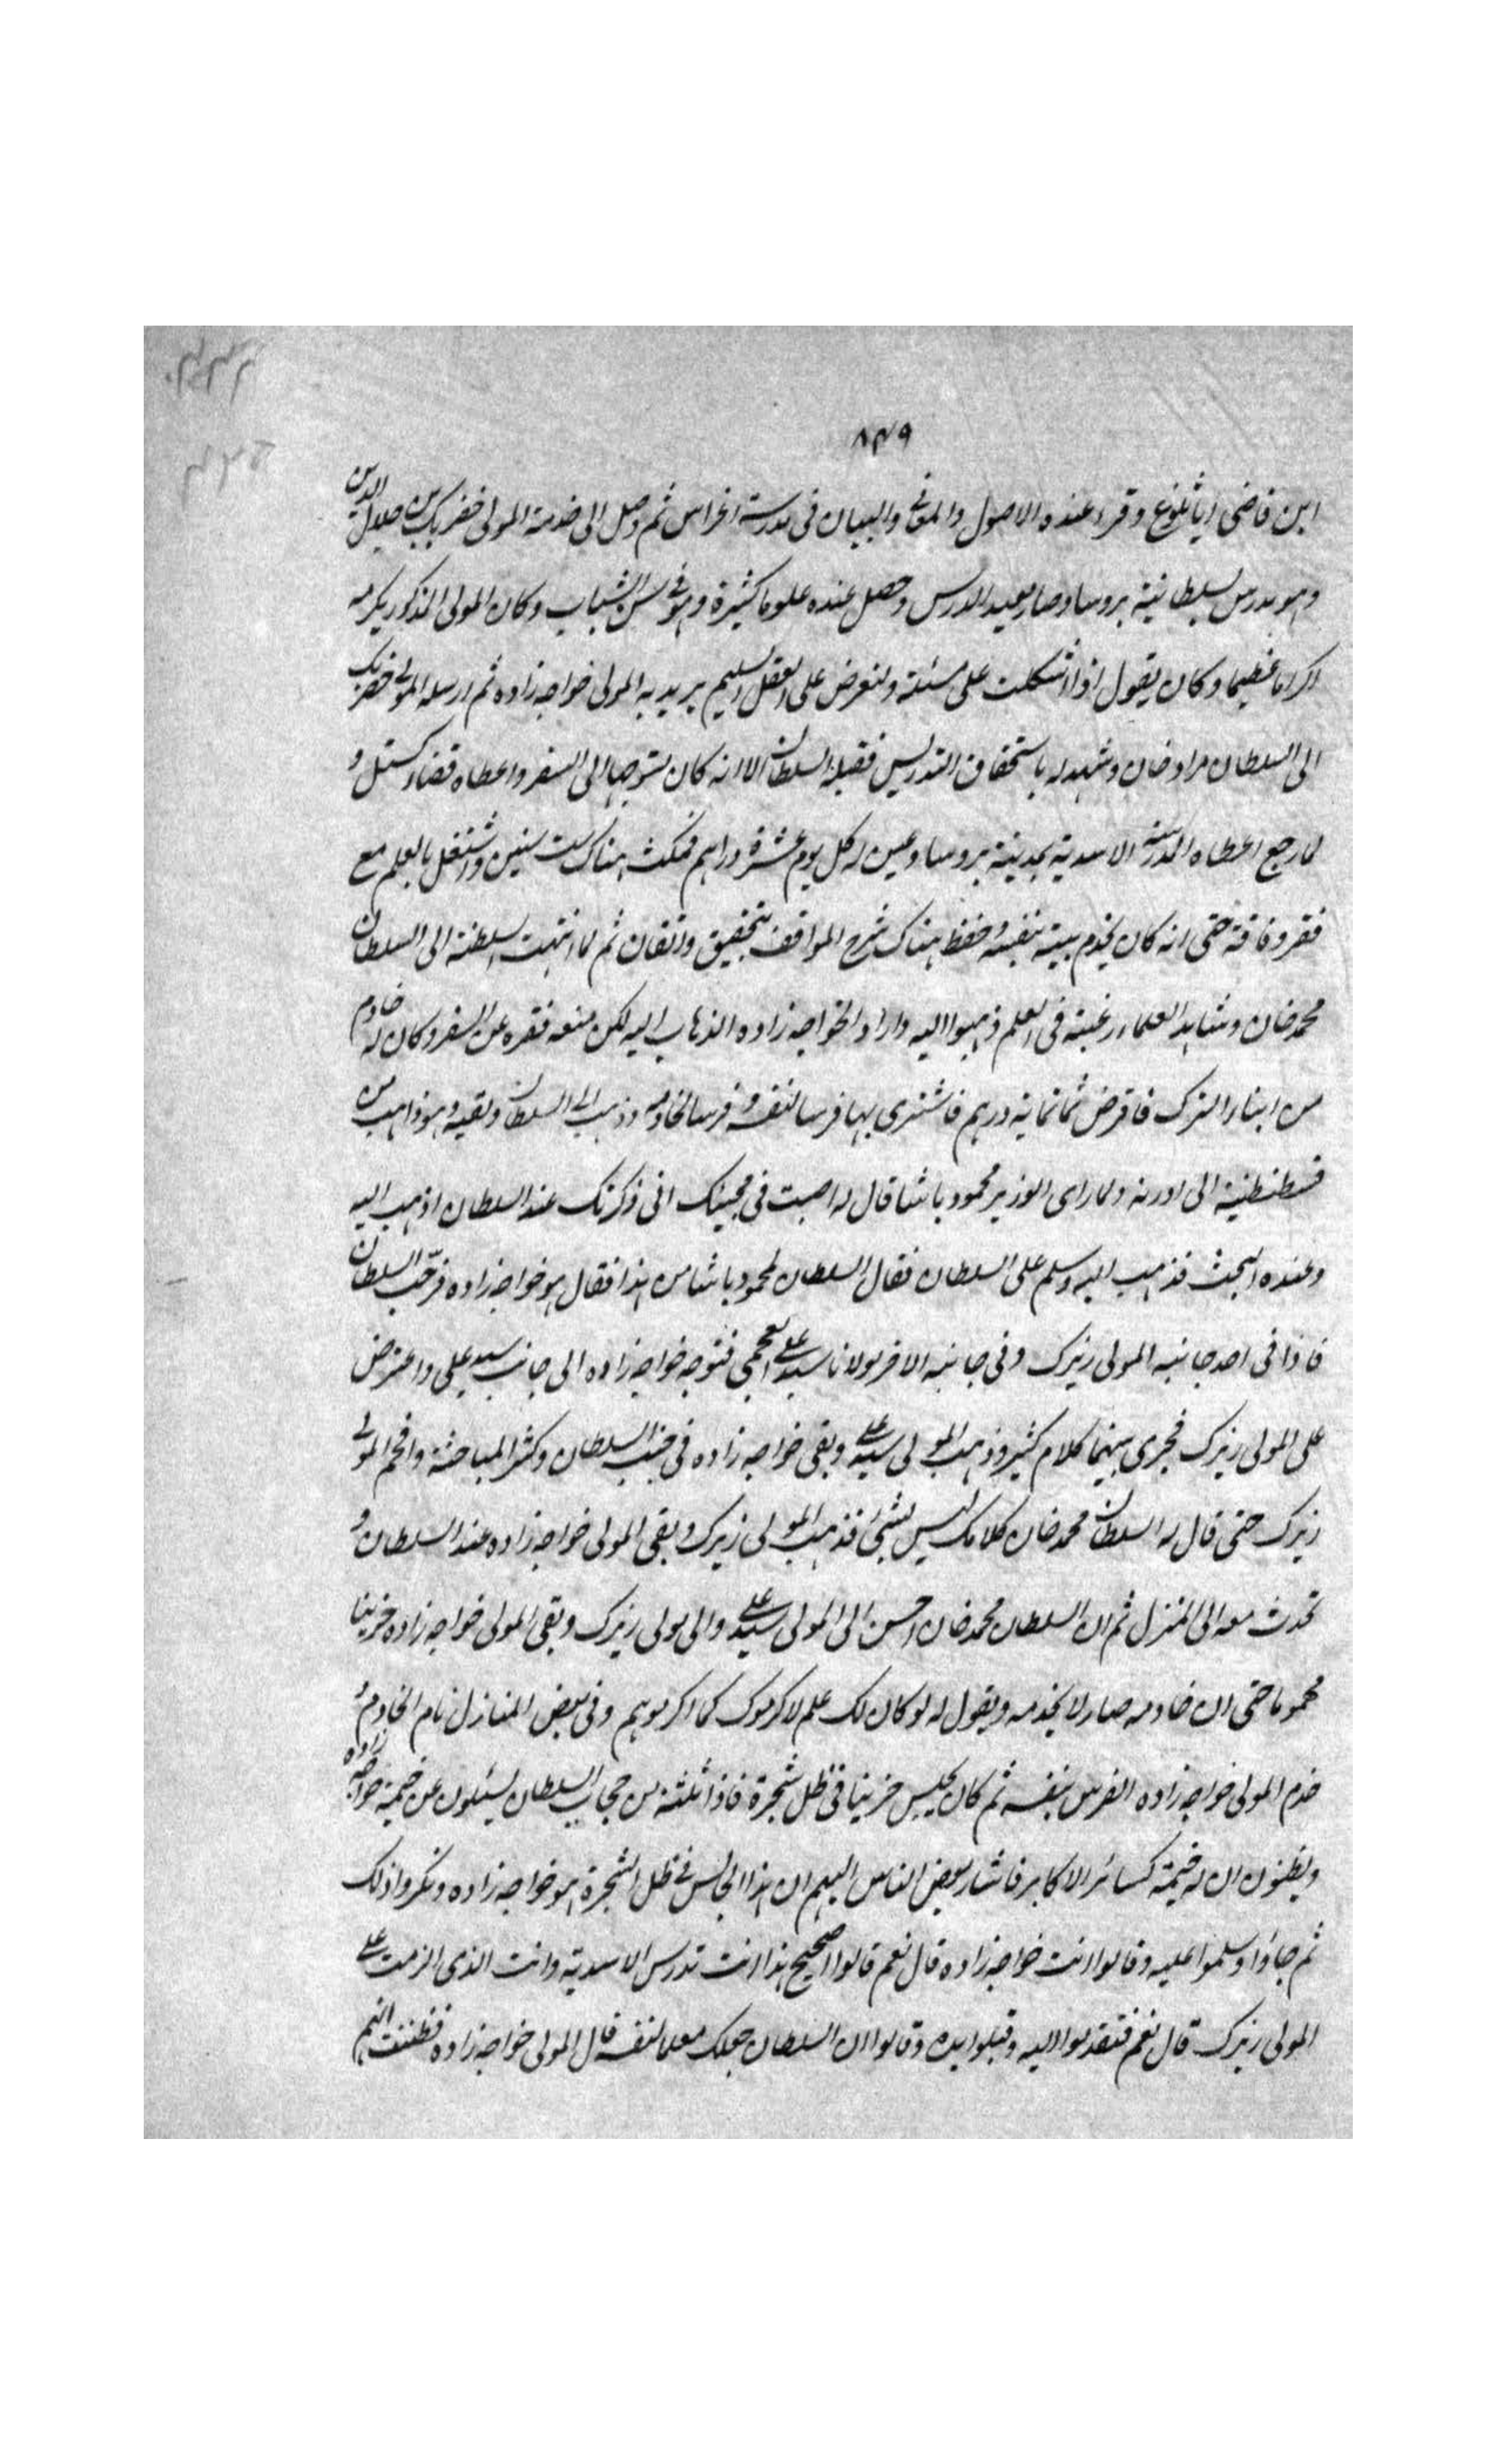 ٨٣٩
ابن قاضى اياثلوغ وقرء عنده الاصول والمعانى والبيان فى مدرسة اغراس ثم وصل الى خدمة المولى خضر بك بن جلال الدين
وهو مدرس بسلطانية بروسا وصار معيد الدرس وحصل عنده علوما كثيرة وهو فى سن الشباب وكان المولى المذكور يكرمه
اكراما عظيما وكان يقول اذا اشكلت على مسئلة ولنعرض على العقل السليم يريد به المولى خواجه زاده ثم ارسله المولى خضر بك
الى السلطان مراد خان وشهد له باستحقاق التدريس فقبله السلطان الا انه كان متوجها الى السفر واعطاه قضاء كستل و
لما رجع اعطاه المدرسة الاسدية بمدينة بروسا وعين له كل يوم عشرة دراهم فمكث هناك ست سنين واشتغل بالعلم مع
فقر وفاقة حتى انه كان يخدم بيته بنفسه وحفظ هناك شرح المواقف بتحقيق واتقان ثم لما انتهت السلطنة الى السلطان
محمد خان وشاهد العلماء رغبته فى العلم ذهبوا اليه واراد الخواجه زاده الذهاب اليه لكن منعه فقره عن السفر وكان له خادم
من ابناء الترك فاقرض ثمانمائة درهم فاشترى بها فرسا لنفسه وفرسا لخادمه وذهب الى السلطان ولقيه وهو ذاهب من
قسطنطنية الى ادرنه ولما راى الوزير محمود باشا قال له اصبت فى مجيئك انى ذكرتك عند السلطان اذهب اليه
وعنده البحث فذهب اليه وسلم على السلطان فقال السلطان لمحمود باشا من هذا فقال هو خواجه زاده فرحب السلطان
فاذا فى احد جانبيه المولى زيرك وفى جانبه الاخر مولانا سيد على العجمى فتوجه خواجه زاده الى جانب سيد على واعترض
على المولى زيرك فجرى بينهما كلام كثير وذهب المولى سيد على وبقى خواجه زاده فى جنب السلطان وكثر المباحثة وافحم المولى
زيرك حتى قال له السلطان محمد خان كلامك ليس بشئ فذهب المولى زيرك وبقى المولى خواجه زاده عند السلطان و
تحدث معه الى المنزل ثم ان السلطان محمد خان احسن الى المولى سيد على والى مولى زيرك وبقى المولى خواجه زاده حزينا
محموما حتى ان خادمه صار لا يخدمه ويقول له لو كان لك علم لاكرموك كما اكرموهم وفى بعض المنازل نام الخادم و
خدم المولى خواجه زاده الفرس بنفسه ثم كان يجلس حزينا فى ظل شجرة فاذا ثلثة من حجاب السلطان يسئلون عن خيمة خواجه زاده
ويظنون ان له خيمة كسائر الاكابر فاشار بعض الناس اليهم ان هذا الجالس فى ظل الشجرة هو خواجه زاده ونكروا ذلك
ثم جاؤا وسلموا عليه وقالوا انت خواجه زاده قال نعم قالوا اصحيح هذا انت تدرس الاسدية وانت الذى الزمت على
المولى زيرك قال نعم فتقدموا اليه وقبلوا يده وقالوا ان السلطان جعلك معلما لنفسه قال المولى خواجه زاده فظننت انهم